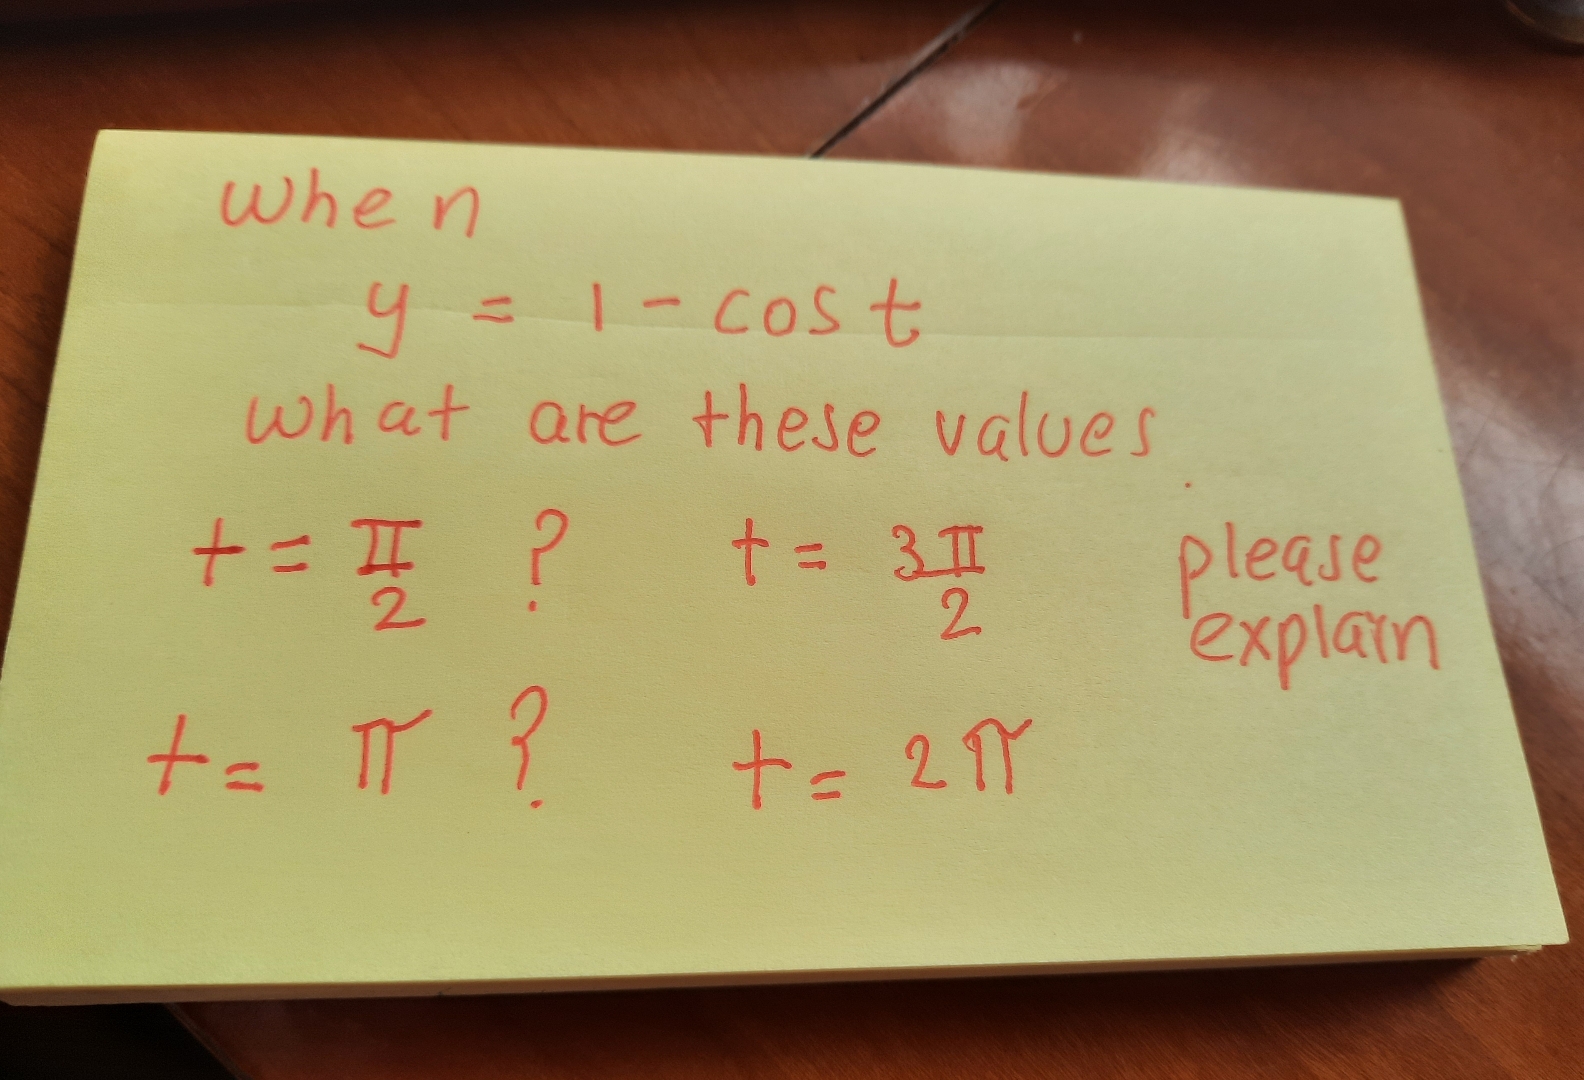 when
y = 1 - cos t
what are these values
t = π/2 ? t = 3π/2 please
explain
t = π ? t = 2π